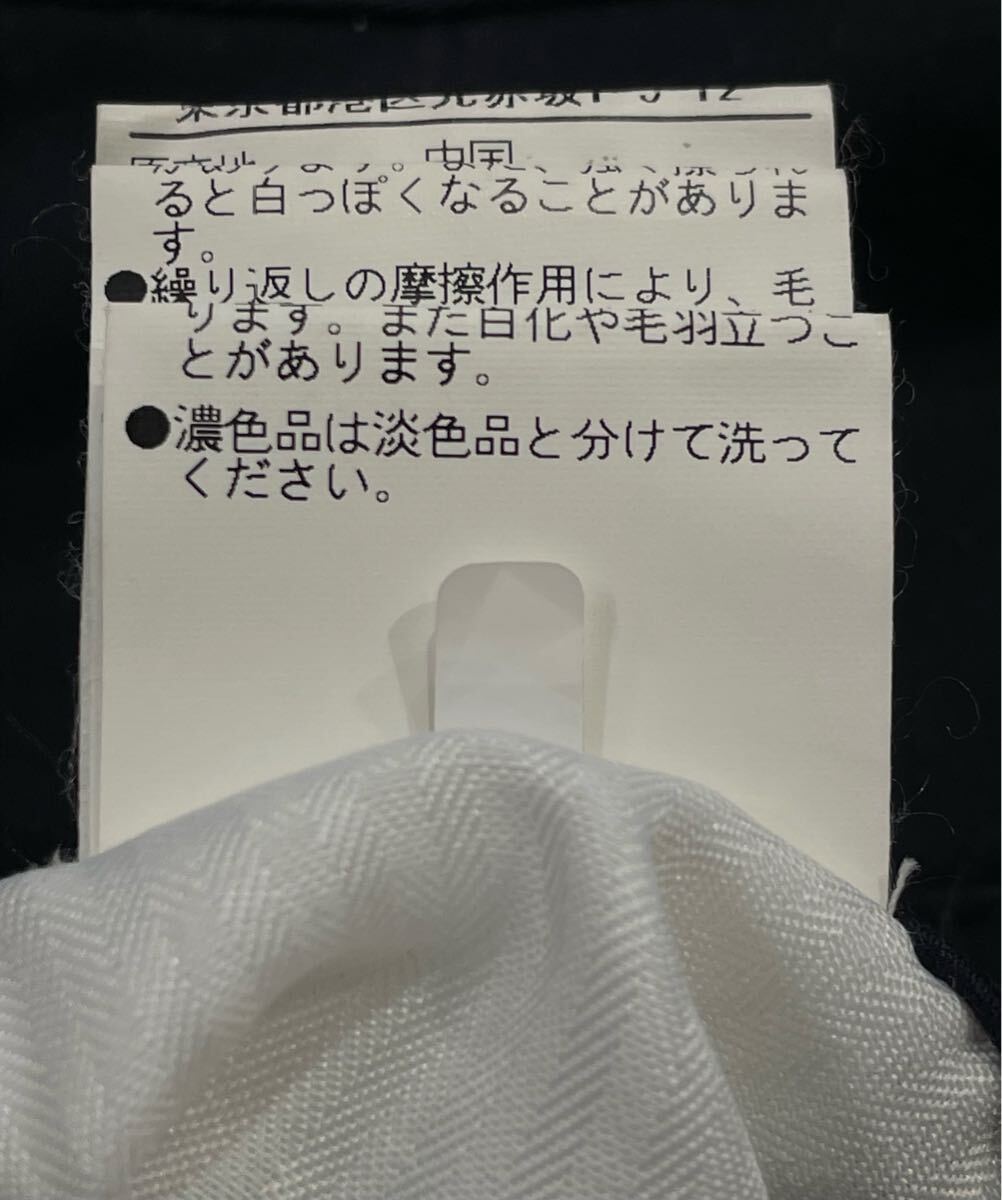 東京都港区元赤坂1-5-12
中国
ると白っぽくなることがありま
す。
●繰り返しの摩擦作用により、毛
ります。また白化や毛羽立つこ
とがあります。
●濃色品は淡色品と分けて洗って
ください。